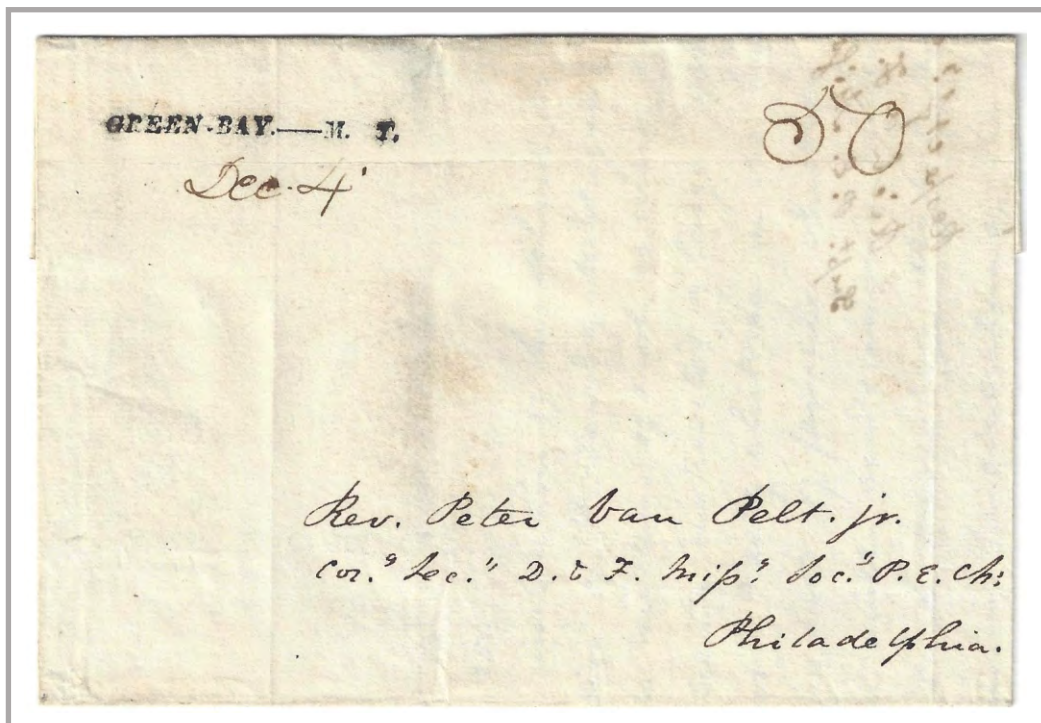 GREEN-BAY.—M. T.
Dec. 4
50
Rev. Peter Van Pelt. jr.
Cor.g Sec.y D. & F. Miss.y Soc.y P. E. Ch:
Philadelphia.